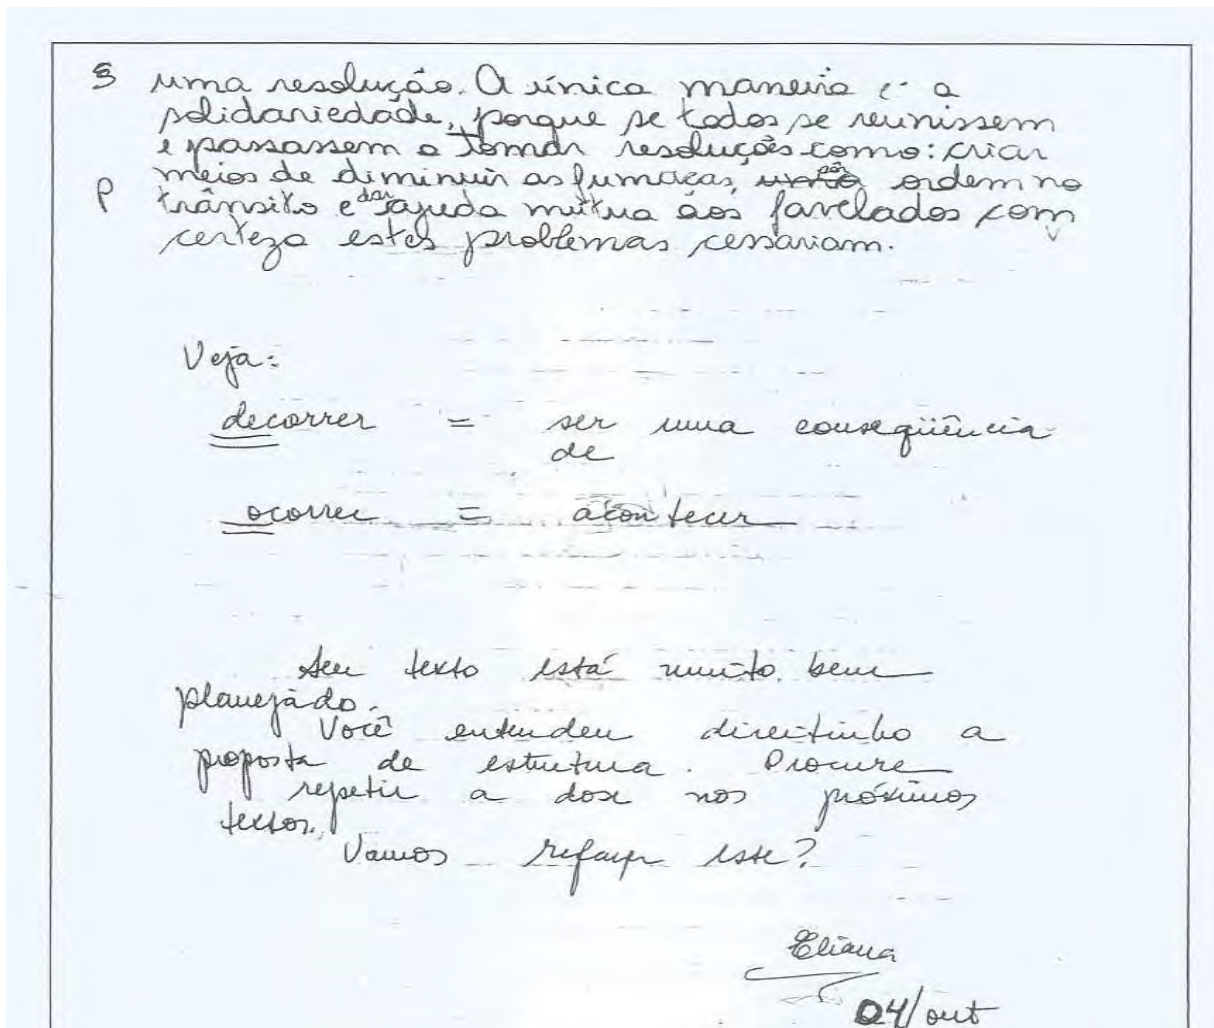 S uma resolução. A única maneira é a
solidariedade, porque se todos se reunissem
e passassem a tomar resoluções como: criar
meios de diminuir as fumaças, pôr ordem no
P trânsito e dar ajuda mútua aos favelados com
certeza estes problemas cessariam.
Veja:
decorrer = ser uma conseqüência
de
ocorrer = acontecer
Seu texto está muito bem
planejado.
Você entendeu direitinho a
proposta de estrutura. Procure
repetir a dose nos próximos
textos.
Vamos refazer esse?
Eliana
04/out